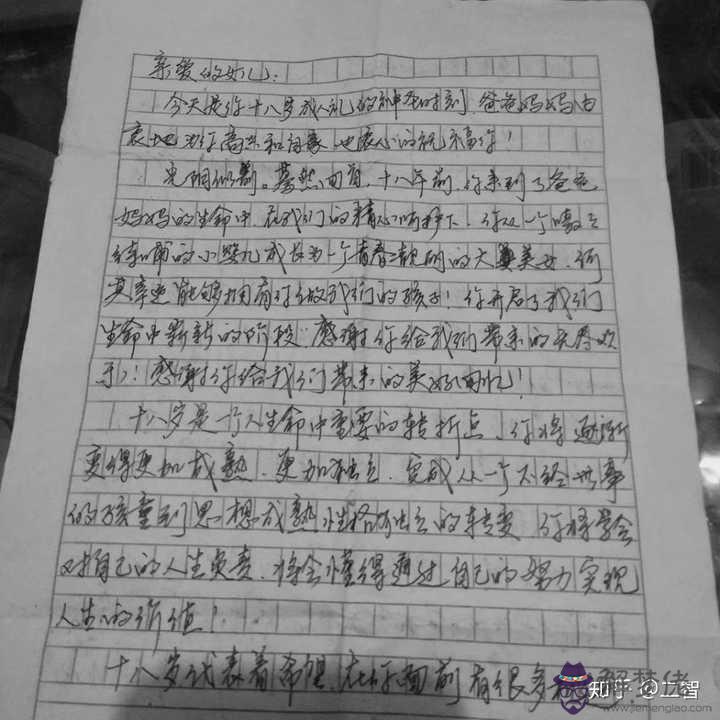 亲爱的女儿：
今天是你十八岁成人礼的神圣时刻，爸爸妈妈由
衷地为你高兴和自豪，也衷心的祝福你！
光阴似箭。蓦然回首，十八年前，你来到了爸爸
妈妈的生命中，在我们的精心呵护下，你从一个嗷嗷
待哺的小婴儿成长为一个青春靓丽的大美女，何
其幸运能够拥有你做我们的孩子！你开启了我们
生命中崭新的阶段，感谢你给我们带来的无尽欢
乐！感谢你给我们带来的美好回忆！
十八岁是一个人生命中重要的转折点，你将逐渐
变得更加成熟、更加独立，完成从一个不经世事
的孩童到思想成熟、性格独立的转变，你将学会
对自己的人生负责，将会懂得通过自己的努力实现
人生的价值！
十八岁代表着希望，在你面前有很多
知乎 @立智
解梦佬
www.jiemenglao.com